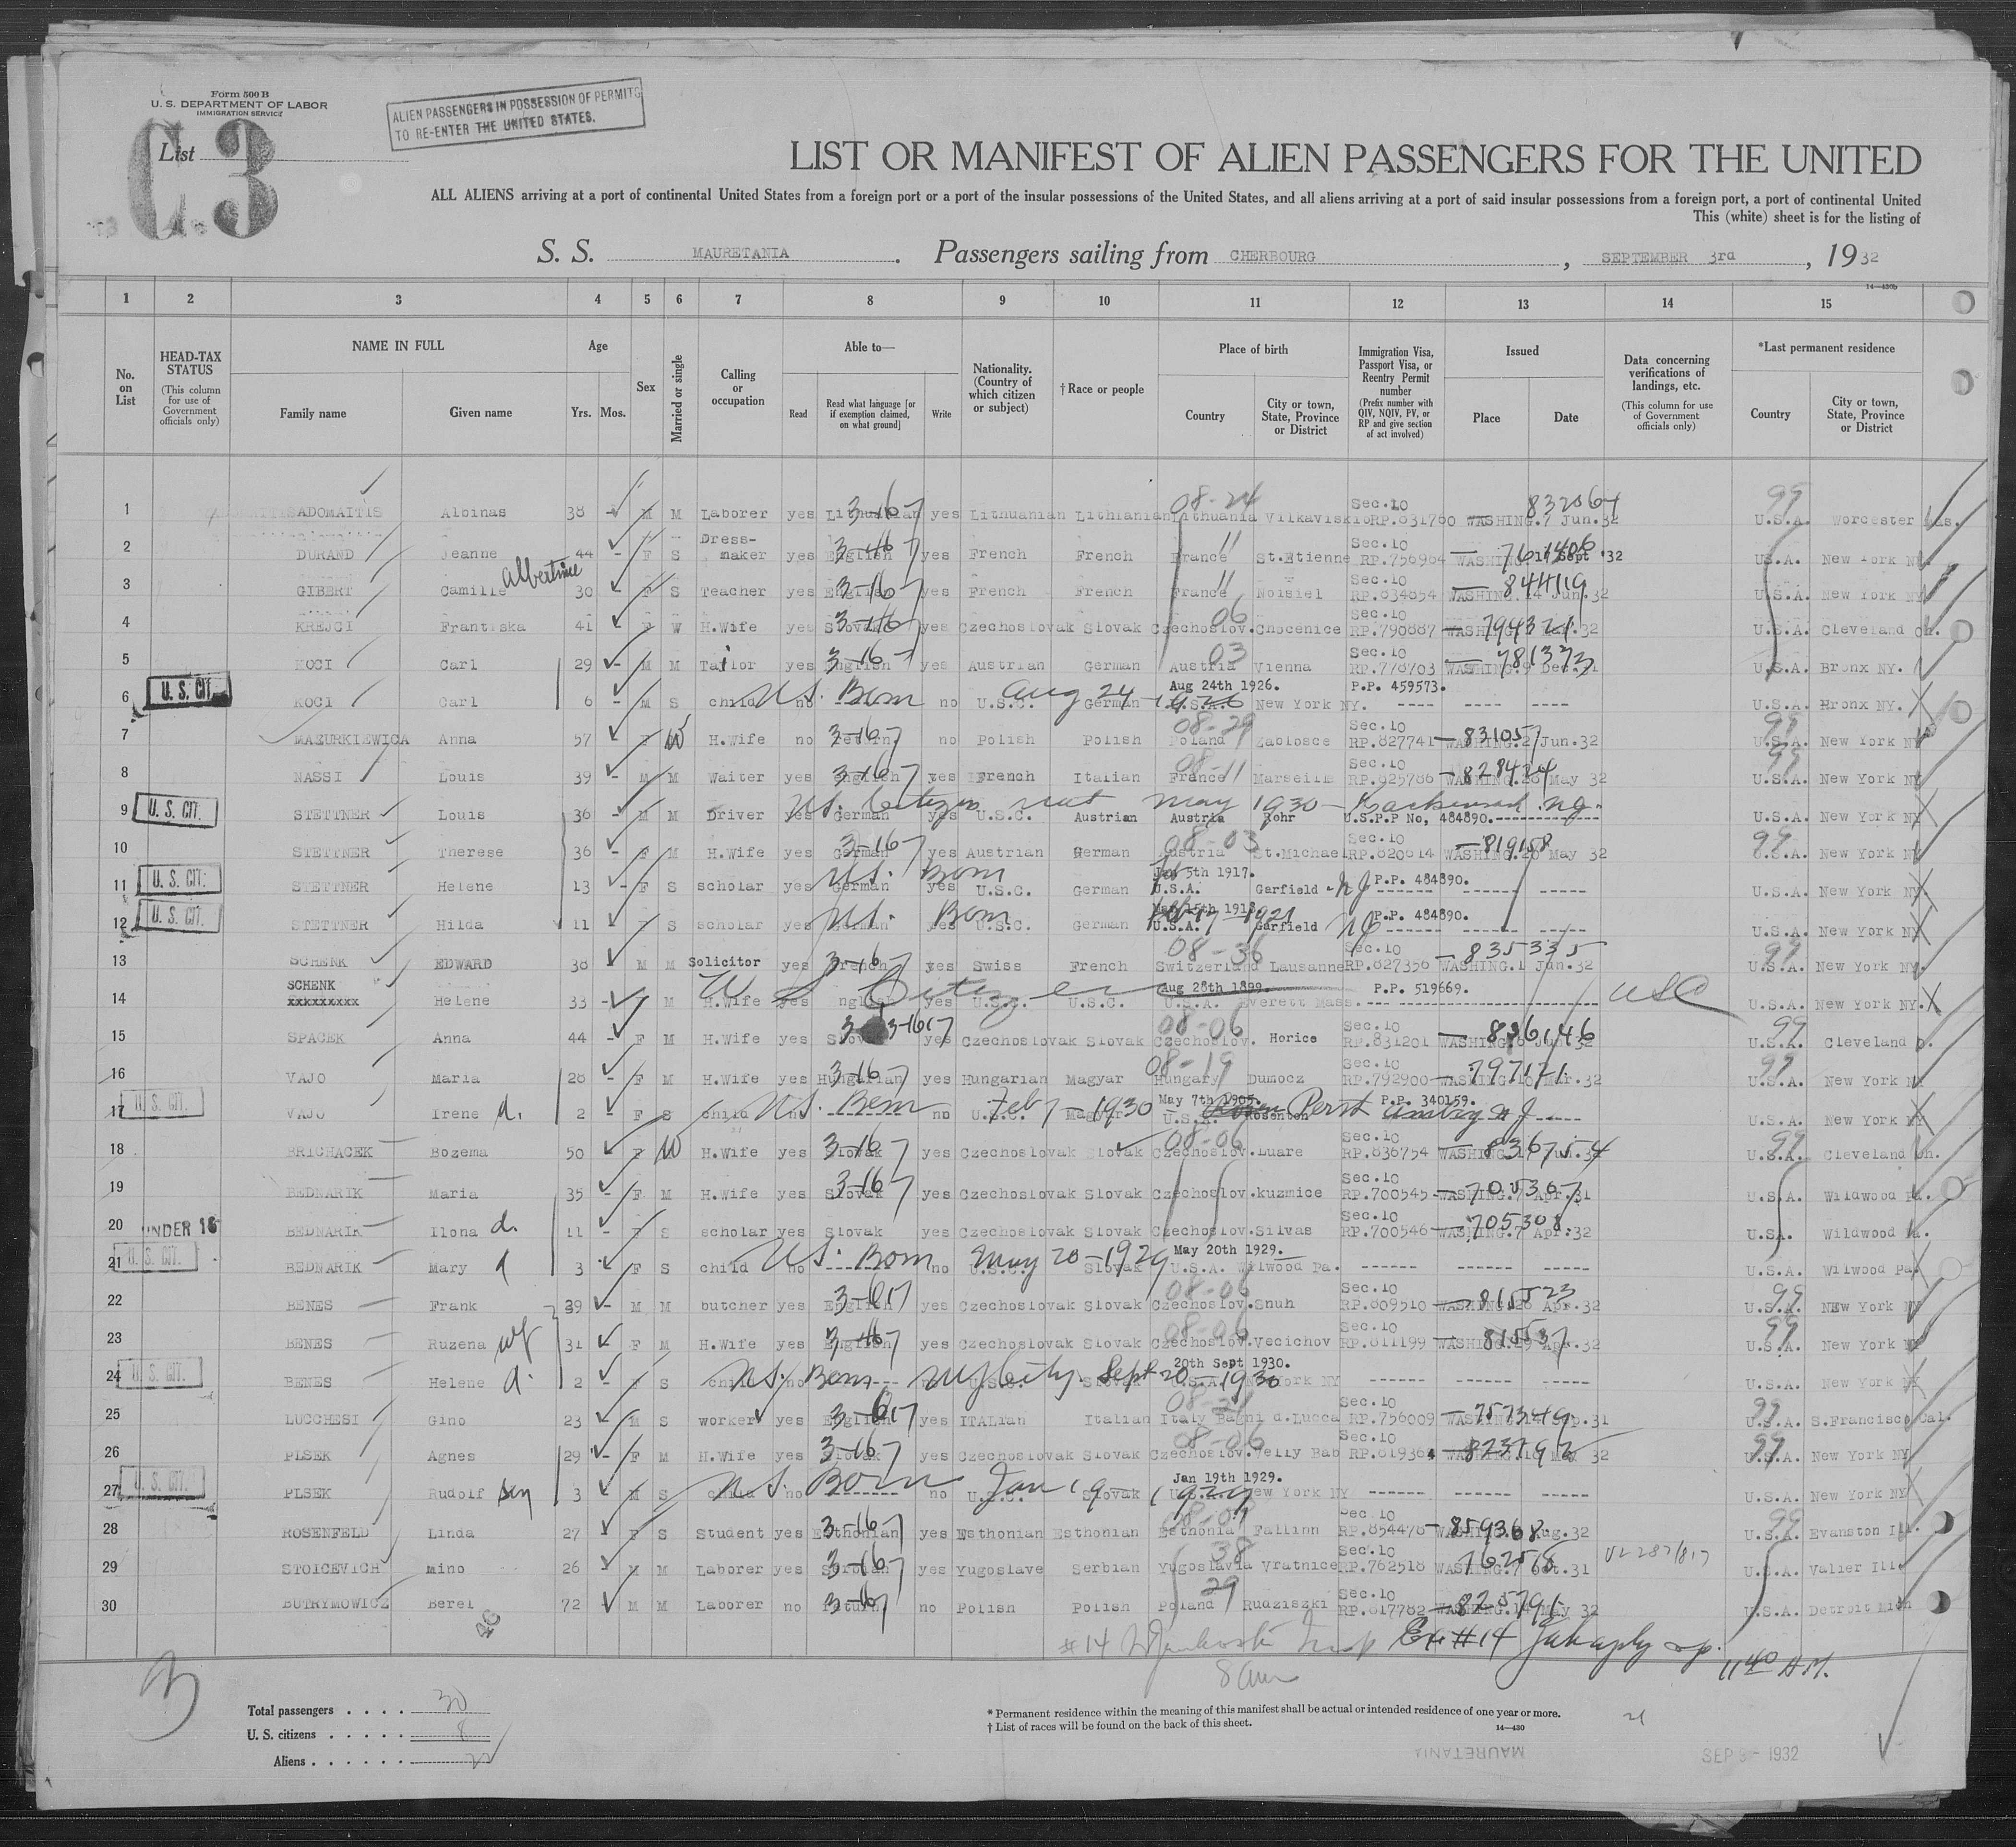 Form 500 B
U. S. DEPARTMENT OF LABOR
IMMIGRATION SERVICE
ALIEN PASSENGERS IN POSSESSION OF PERMITS
TO RE-ENTER THE UNITED STATES.
List C.3
LIST OR MANIFEST OF ALIEN PASSENGERS FOR THE UNITED
ALL ALIENS arriving at a port of continental United States from a foreign port or a port of the insular possessions of the United States, and all aliens arriving at a port of said insular possessions from a foreign port, a port of continental United
This (white) sheet is for the listing of
S. S. MAURETANIA. Passengers sailing from CHERBOURG, SEPTEMBER 3rd, 1932
14—430b
1 2 3 4 5 6 7 8 9 10 11 12 13 14 15
No. on List
HEAD-TAX STATUS (This column for use of Government officials only)
NAME IN FULL
Family name Given name
Age
Yrs. Mos.
Sex
Married or single
Calling or occupation
Able to—
Read Read what language [or if exemption claimed, on what ground] Write
Nationality. (Country of which citizen or subject)
† Race or people
Place of birth
Country City or town, State, Province or District
Immigration Visa, Passport Visa, or Reentry Permit number (Prefix number with QIV, NQIV, PV, or RP and give section of act involved)
Issued
Place Date
Data concerning verifications of landings, etc. (This column for use of Government officials only)
*Last permanent residence
Country City or town, State, Province or District
1 ADOMAITIS Albinas 38 - M M Laborer yes Lithuanian 3-16-7 yes Lithuanian Lithianian Lithuania 08-24 Sec.10 RP.831760 WASHING.7 Jun.32 832064 99 U.S.A. Worcester Mas.
2 DURAND Jeanne 44 - F S Dress-maker yes English 3-16-7 yes French French France 11 St.Etienne Sec.10 RP.756964 WASHING. Sept.32 U.S.A. New York NY
3 GIBERT Camille Albertine 30 - F S Teacher yes English 3-16-7 yes French French France 11 Noisiel Sec.10 RP.834854 WASHING.14 Jun.32 844119 U.S.A. New York NY
4 KREJCI Frantiska 41 - F W H.Wife yes Slovak 3-16-7 yes Czechoslovak Slovak Czechoslov. 06 Chocenice Sec.10 RP.790887 WASHING. 32 794321 U.S.A. Cleveland Oh.
5 KOCI Carl 29 - M M Tailor yes English 3-16-7 yes Austrian German Austria 03 Vienna Sec.10 RP.778703 WASHING.9 Dec.31 781373 U.S.A. Bronx NY.
6 U.S. CIT. KOCI Carl 6 - M S child no U.S. Born no U.S.C. Aug 24-1926 German Aug 24th 1926. U.S.A. New York NY. P.P. 459573. ---- ---- ---- U.S.A. Bronx NY. X
7 MAZURKIEWICA Anna 57 - F W H.Wife no 3-16-7 no Polish Polish Poland 08-29 Zablosce Sec.10 RP.827741 WASHING.2 Jun.32 831057 99 U.S.A. New York NY
8 NASSI Louis 39 - M M Waiter yes English 3-16-7 yes French Italian France 08-11 Marseille Sec.10 RP.825786 WASHING.26 May 32 828424 99 U.S.A. New York NY
9 U. S. CIT. STETTNER Louis 36 - M M Driver yes German yes U.S.C. Austrian Austria Rohr U.S.P.P No, 484890. U.S. Citizen nat May 1930 - Hackensack N.J. U.S.A. New York NY X
10 STETTNER Therese 36 - F M H.Wife yes German 3-16-7 yes Austrian German Austria 08-03 St.Michael Sec.10 RP.820814 WASHING.20 May 32 819158 99 U.S.A. New York NY
11 U. S. CIT. STETTNER Helene 13 - F S scholar yes German yes U.S. Born U.S.C. German 5th 1917. U.S.A. Garfield - N J P.P. 484890. U.S.A. New York NY X
12 U. S. CIT. STETTNER Hilda 11 - F S scholar yes German yes U.S. Born U.S.C. German 15th 1918 1921 U.S.A. Garfield N J P.P. 484890. U.S.A. New York NY X
13 SCHENK EDWARD 38 - M M Solicitor yes French 3-16-7 yes Swiss French Switzerland 08-36 Lausanne Sec.10 RP.827356 WASHING.1 Jun.32 835335 99 U.S.A. New York NY.
14 SCHENK xxxxxxxxx Helene 33 - F M H.Wife yes English yes U S Citizen U.S.C. U.S.C. Aug 28th 1899. U.S.A. Everett Mass. P.P. 519669. USC U.S.A. New York NY. X
15 SPACEK Anna 44 - F M H.Wife yes Slovak 3-16-7 yes Czechoslovak Slovak Czechoslov. 08-06 Horice Sec.10 RP.831201 WASHING.6 Jun.32 836146 99 U.S.A. Cleveland O.
16 VAJO Maria 28 - F M H.Wife yes Hungarian 3-16-7 yes Hungarian Magyar Hungary 08-19 Dumocz Sec.10 RP.792900 WASHING.10 Mar.32 797171 99 U.S.A. New York NY
17 U. S. CIT. VAJO Irene d. 2 - F S child no U.S. Born no U.S.C. Feb 7-1930 Magyar May 7th 1905. U.S.A. Perth Amboy N J P.P. 340159. U.S.A. New York NY X
18 BRICHACEK Bozema 50 - F W H.Wife yes Slovak 3-16-7 yes Czechoslovak Slovak Czechoslov. 08-06 Luare Sec.10 RP.836754 WASHING. Jun.32 99 U.S.A. Cleveland Oh.
19 BEDNARIK Maria 35 - F M H.Wife yes Slovak 3-16-7 yes Czechoslovak Slovak Czechoslov. kuzmice Sec.10 RP.700545 WASHING.7 Apr.31 705307 U.S.A. Wildwood Pa.
20 UNDER 16 BEDNARIK Ilona d. 11 - F S scholar yes Slovak yes Czechoslovak Slovak Czechoslov. Silvas Sec.10 RP.700546 WASHING.7 Apr.32 705308 U.S.A. Wildwood Pa.
21 U. S. CIT. BEDNARIK Mary d 3 - F S child no U.S. Born no U.S.C. May 20-1929 Slovak May 20th 1929. U.S.A. Wilwood Pa. ------ ------ ----- U.S.A. Wilwood Pa. X
22 BENES Frank 39 - M M butcher yes English 3-16-7 yes Czechoslovak Slovak Czechoslov. 08-06 Snuh Sec.10 RP.809510 WASHING.28 Apr.32 815523 99 U.S.A. NEw York NY
23 BENES Ruzena wf 31 - F M H.Wife yes English 3-16-7 yes Czechoslovak Slovak Czechoslov. 08-06 Vecichov Sec.10 RP.811199 WASHING.29 Apr.32 815537 99 U.S.A. New York NY
24 U. S. CIT. BENES Helene d. 2 - F S child no U.S. Born NY City Sept 20-1930 Slovak 20th Sept 1930. U.S.A. New York NY ------ ------ ----- U.S.A. New York NY X
25 LUCCHESI Gino 23 - M S worker yes English 3-16-7 yes ITALian Italian Italy 08-21 Bagni d.Lucca Sec.10 RP.756009 WASHING. Sep.31 757349 99 U.S.A. S.Francisco Cal.
26 PLSEK Agnes 29 - F M H.Wife yes Slovak 3-16-7 yes Czechoslovak Slovak Czechoslov. 08-06 Velly Bab Sec.10 RP.819364 WASHING.18 May 32 99 U.S.A. New York NY
27 U. S. CIT. PLSEK Rudolf son 3 - M S child no U.S. Born no U.S.C. Jan 19-1929 Slovak Jan 19th 1929. U.S.A. New York NY ------ ------ ----- U.S.A. New York NY X
28 ROSENFELD Linda 27 - F S Student yes Esthonian 3-16-7 yes Esthonian Esthonian Esthonia Fallinn Sec.10 RP.854478 WASHING. Aug.32 859368 99 U.S.A. Evanston Ill.
29 STOICEVICH mino 26 - M M Laborer yes Serbian 3-16-7 yes Yugoslave Serbian Yugoslavia 38 Vratnice Sec.10 RP.762518 WASHING.7 Oct.31 U.S.A. Valier Ill.
30 BUTRYMOWICZ Berel 72 - M M Laborer no 3-16-7 no Polish Polish Poland 29 Rudziszki Sec.10 RP.817782 WASHING.14 May 32 825791 U.S.A. Detroit Mich
11 40 A.M.
3
Total passengers . . . . 30
U. S. citizens . . . . . 8
Aliens . . . . . . 22
* Permanent residence within the meaning of this manifest shall be actual or intended residence of one year or more.
† List of races will be found on the back of this sheet.
14—430
MAURETANIA
SEP 3 - 1932